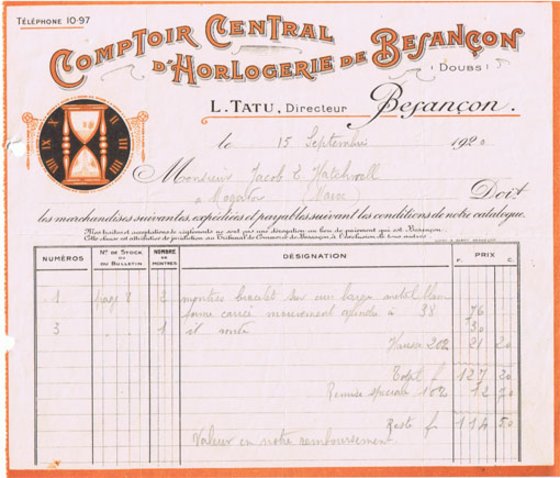 TÉLÉPHONE 10-97
COMPTOIR CENTRAL
D'HORLOGERIE DE BESANÇON
(DOUBS)
L. TATU, Directeur Besançon.
le 15 Septembre 1920
Monsieur Jacob E Hatchwell
à Mogador (Maroc) Doit
les marchandises suivantes, expédiées et payables suivant les conditions de notre catalogue.
Nos traites et acceptations de règlements ne sont pas une dérogation au lieu de paiement qui est Besançon.
Cette clause est attributive de juridiction au Tribunal de Commerce de Besançon à l'exclusion de tous autres.
NUMÉROS Nº DE STOCK OU DU BULLETIN NOMBRE DE MONTRES DÉSIGNATION PRIX F. C.
1 page 8 2 montres bracelet sur cuir large métal blanc
forme carré mouvement cylindre à 38 76
3 1 id ronde 30
Hausse 20% 21 20
Total f 127 20
Remise spéciale 10% 12 70
Reste f 114 50
Valeur en notre remboursement.